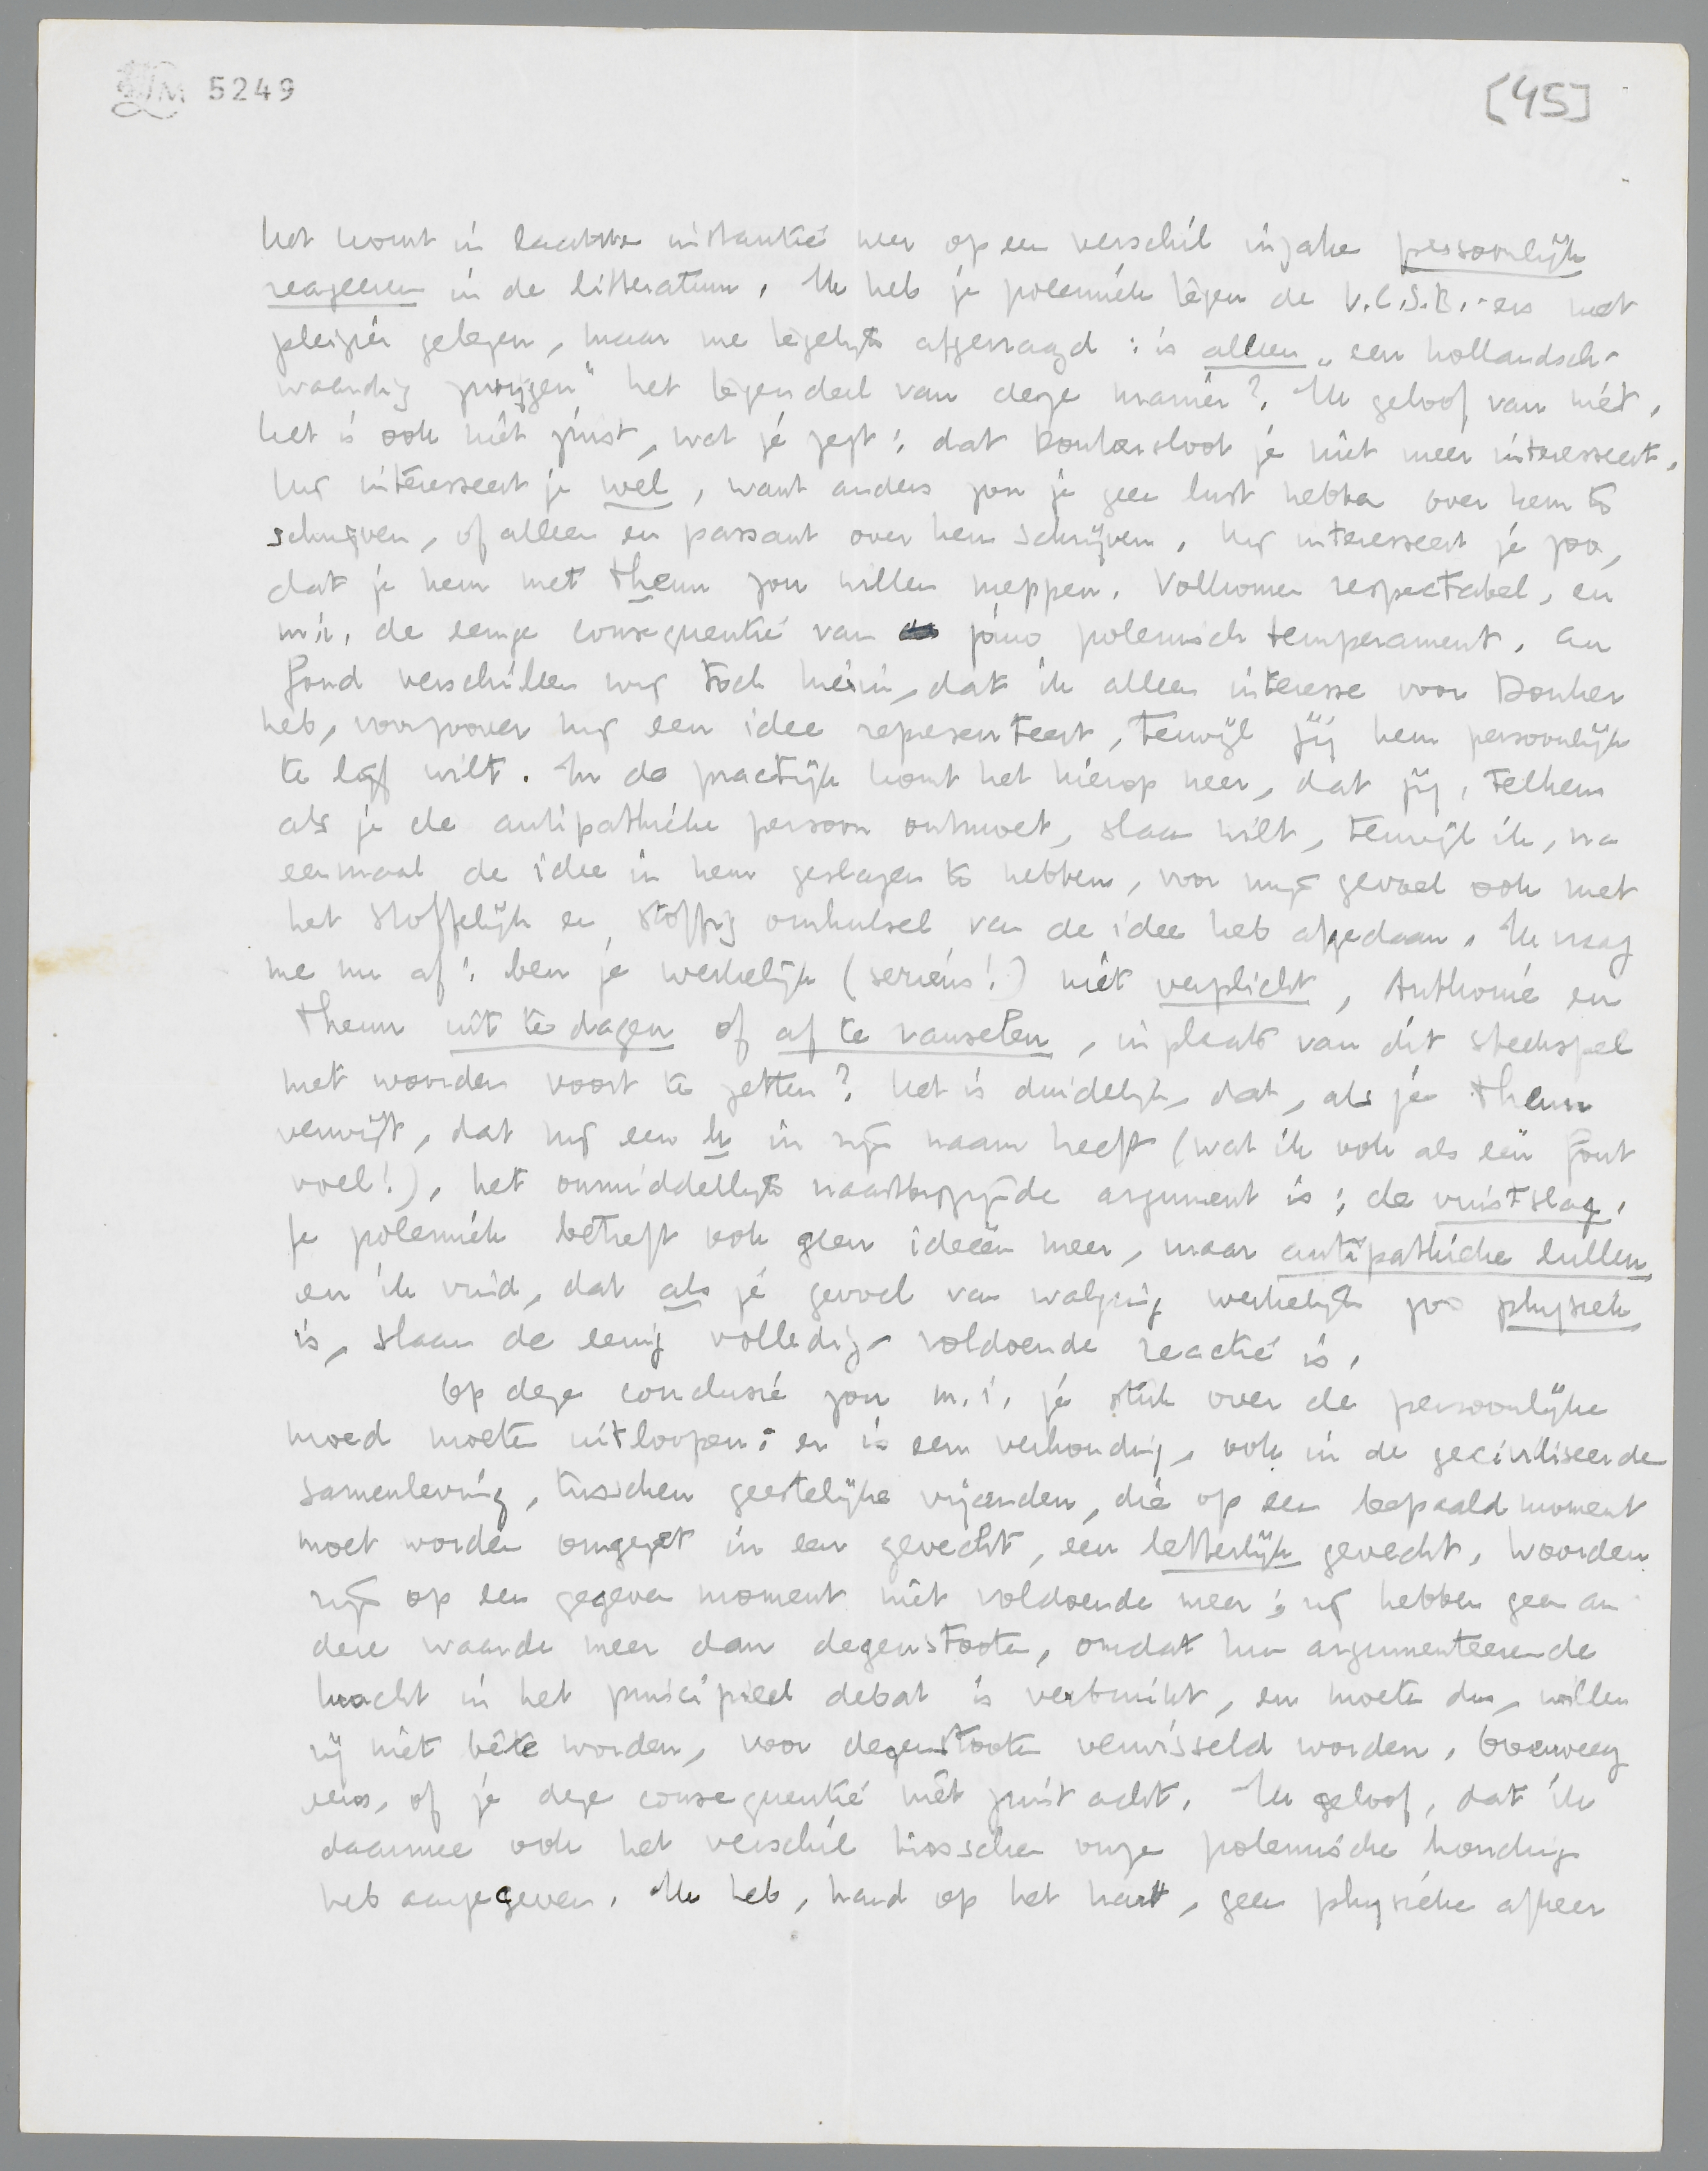 LM 5249
[45]
het komt in laatste instantie neer op een verschil inzake persoonlijk
reageeren in de litteratuur. Ik heb je polemiek tegen de V.C.S.B.-ers met
plezier gelezen, maar me tegelijk afgevraagd: is alleen „een hollandsch-
waardig zwijgen" het tegendeel van deze manier? Ik geloof van niet.
het is ook niet juist, wat je zegt: dat Donkersloot je niet meer interesseert.
hij interesseert je wel, want anders zou je geen lust hebben over hem te
schrijven, of alleen en passant over hem schrijven. hij interesseert je zoo,
dat je hem met Theun zou willen meppen. Volkomen respectabel, en
m.i. de eenige consequentie van jóuw polemisch temperament. Au
fond verschillen wij toch hierin, dat ik alleen interesse voor Donker
heb, voorzoover hij een idee representeert, terwijl jij hem persoonlijk
te lijf wilt. In de practijk komt het hierop neer, dat jij, telkens
als je de antipathieke persoon ontmoet, slaan wilt, terwijl ik, na
eenmaal de idee in hem geslagen te hebben, voor mijn gevoel ook met
het stoffelijk en stoffig omhulsel van de idee heb afgedaan. Ik vraag
me nu af: ben je werkelijk (serieus!) niet verplicht, Anthonie en
Theun uit te dagen of af te ranselen, in plaats van dit steekspel
met woorden voort te zetten? Het is duidelijk, dat, als je Theun
verwijt, dat hij een h in zijn naam heeft (wat ik ook als een fout
voel!), het onmiddellijk naastbijzijnde argument is: de vuistslag.
Je polemiek betreft ook geen ideeën meer, maar antipathieke lullen,
en ik vind, dat als je gevoel van walging werkelijk zoo physiek
is, slaan de eenig volledig-voldoende reactie is.
Op deze conclusie zou m.i. je stuk over de persoonlijke
moed moeten uitloopen: er is een verhouding, ook in de geciviliseerde
samenleving, tusschen geestelijke vijanden, die op een bepaald moment
moet worden omgezet in een gevecht, een letterlijk gevecht. Woorden
zijn op een gegeven moment niet voldoende meer; zij hebben geen an
dere waarde meer dan degenstooten, omdat hun argumenteerende
kracht in het principieel debat is verbruikt, en moeten dus, willen
zij niet bête worden, voor degenstooten verwisseld worden. Overweeg
eens, of je deze consequentie niet juist acht. Ik geloof, dat ik
daarmee ook het verschil tusschen onze polemische houding
heb aangegeven. Ik heb, hand op het hart, geen physieke afkeer